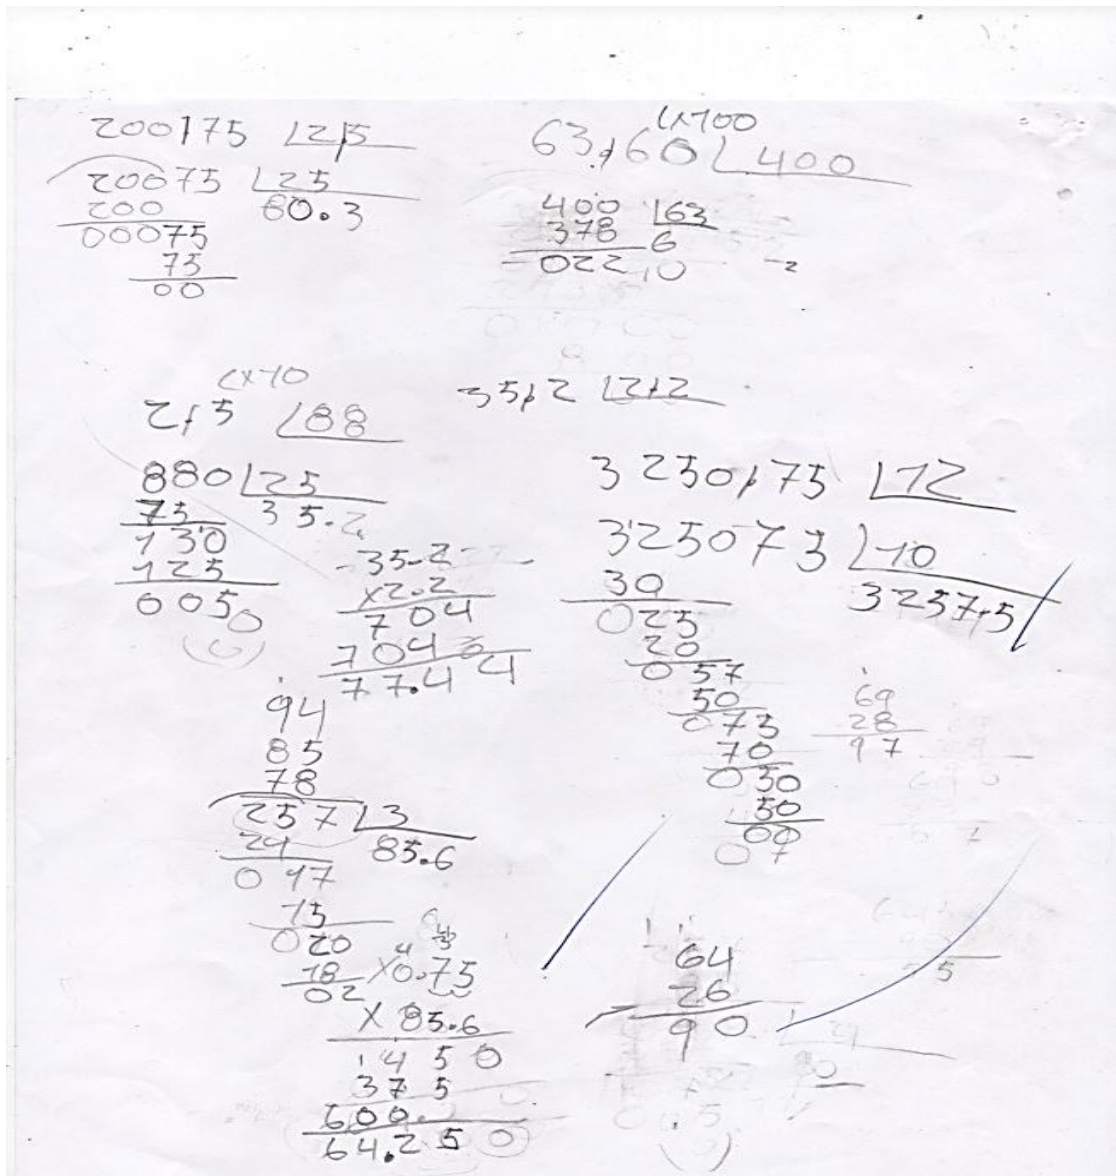 200175 2,5
20075 25
200 80.3
00075
75
00
(x100
63,60 400
400 63
378 6
022,0 -2
(x10
2,5 88
880 25
75 35.2
130
125
0050
35,2 2,2
35.2
x2.2
704
704
77.44
3250,75 12
325075 10
30 3257,5
025
20
057
50
075
70
050
50
00
69
28
97
94
85
78
257 3
24 85.6
017
15
020
18
02
x0.75
x 85.6
450
375
600
64.250
64
26
90